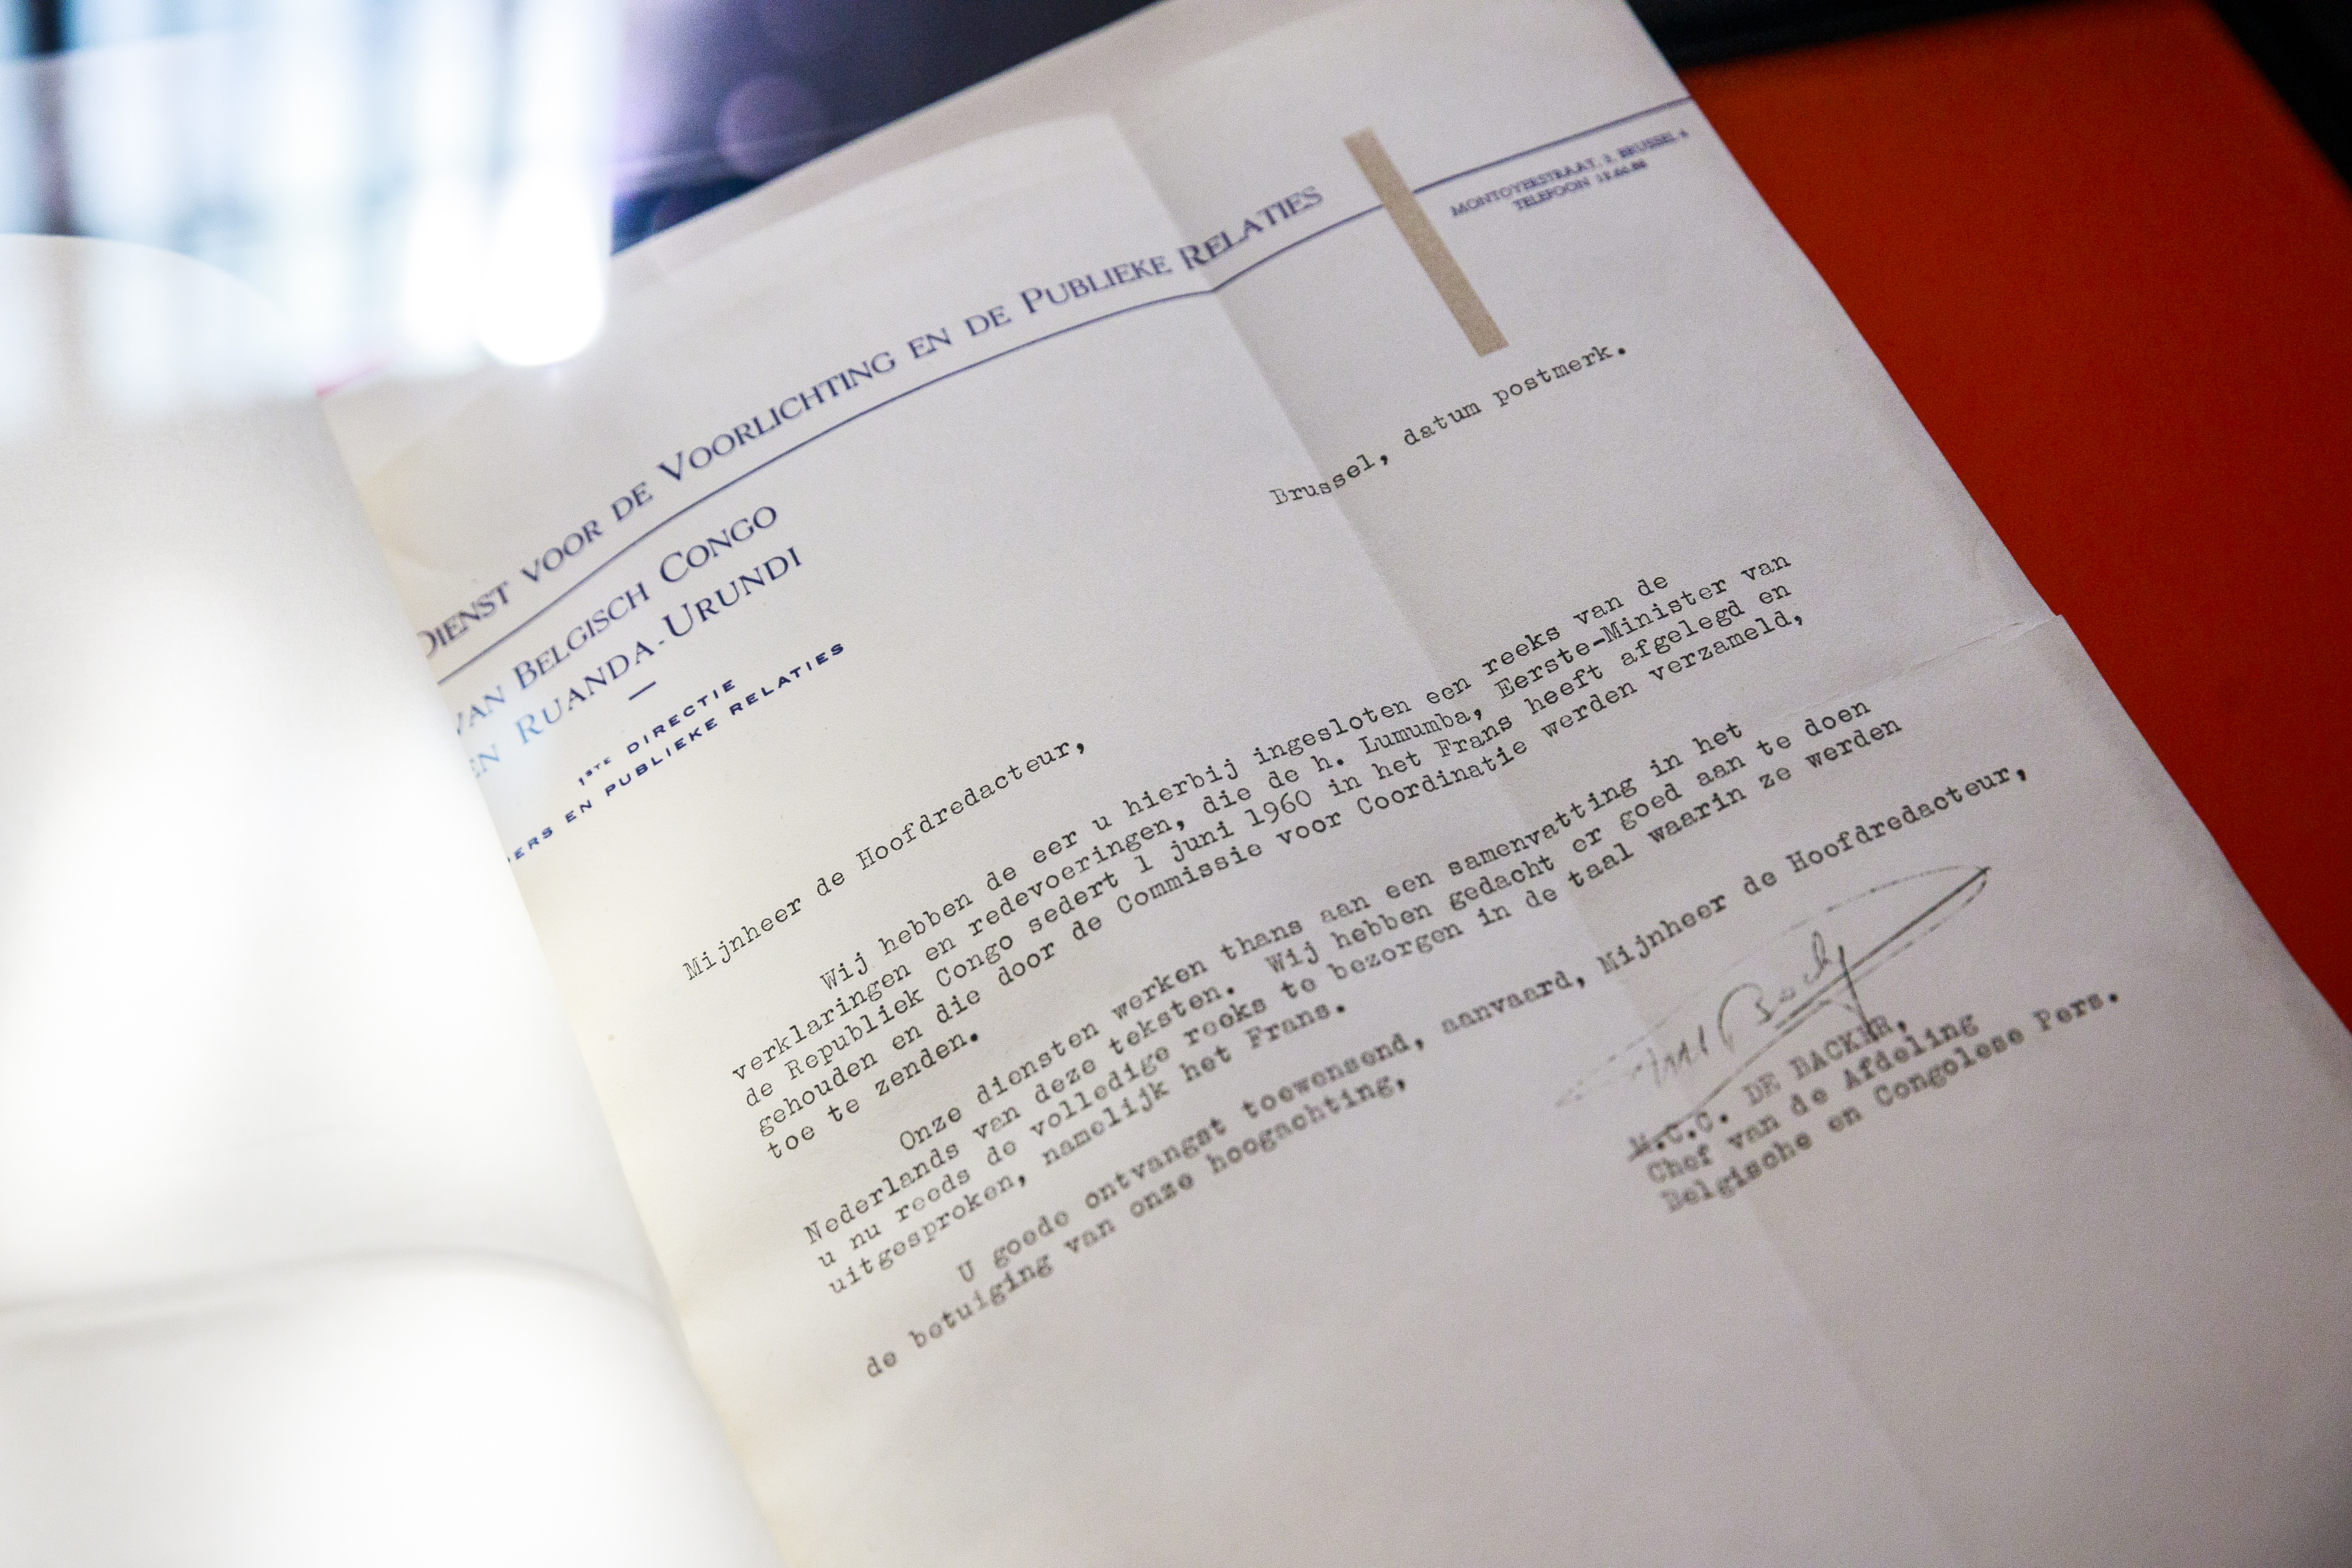 DIENST VOOR DE VOORLICHTING EN DE PUBLIEKE RELATIES
MONTOYERSTRAAT, 2, BRUSSEL 4
TELEFOON
VAN BELGISCH CONGO
EN RUANDA-URUNDI
—
1STE DIRECTIE
PERS EN PUBLIEKE RELATIES
Brussel, datum postmerk.
Mijnheer de Hoofdredacteur,
Wij hebben de eer u hierbij ingesloten een reeks van de
verklaringen en redevoeringen, die de h. Lumumba, Eerste-Minister van
de Republiek Congo sedert 1 juni 1960 in het Frans heeft afgelegd en
gehouden en die door de Commissie voor Coordinatie werden verzameld,
toe te zenden.
Onze diensten werken thans aan een samenvatting in het
Nederlands van deze teksten. Wij hebben gedacht er goed aan te doen
u nu reeds de volledige reeks te bezorgen in de taal waarin ze werden
uitgesproken, namelijk het Frans.
U goede ontvangst toewensend, aanvaard, Mijnheer de Hoofdredacteur,
de betuiging van onze hoogachting,
M.C.C. DE BACKER,
Chef van de Afdeling
Belgische en Congolese Pers.